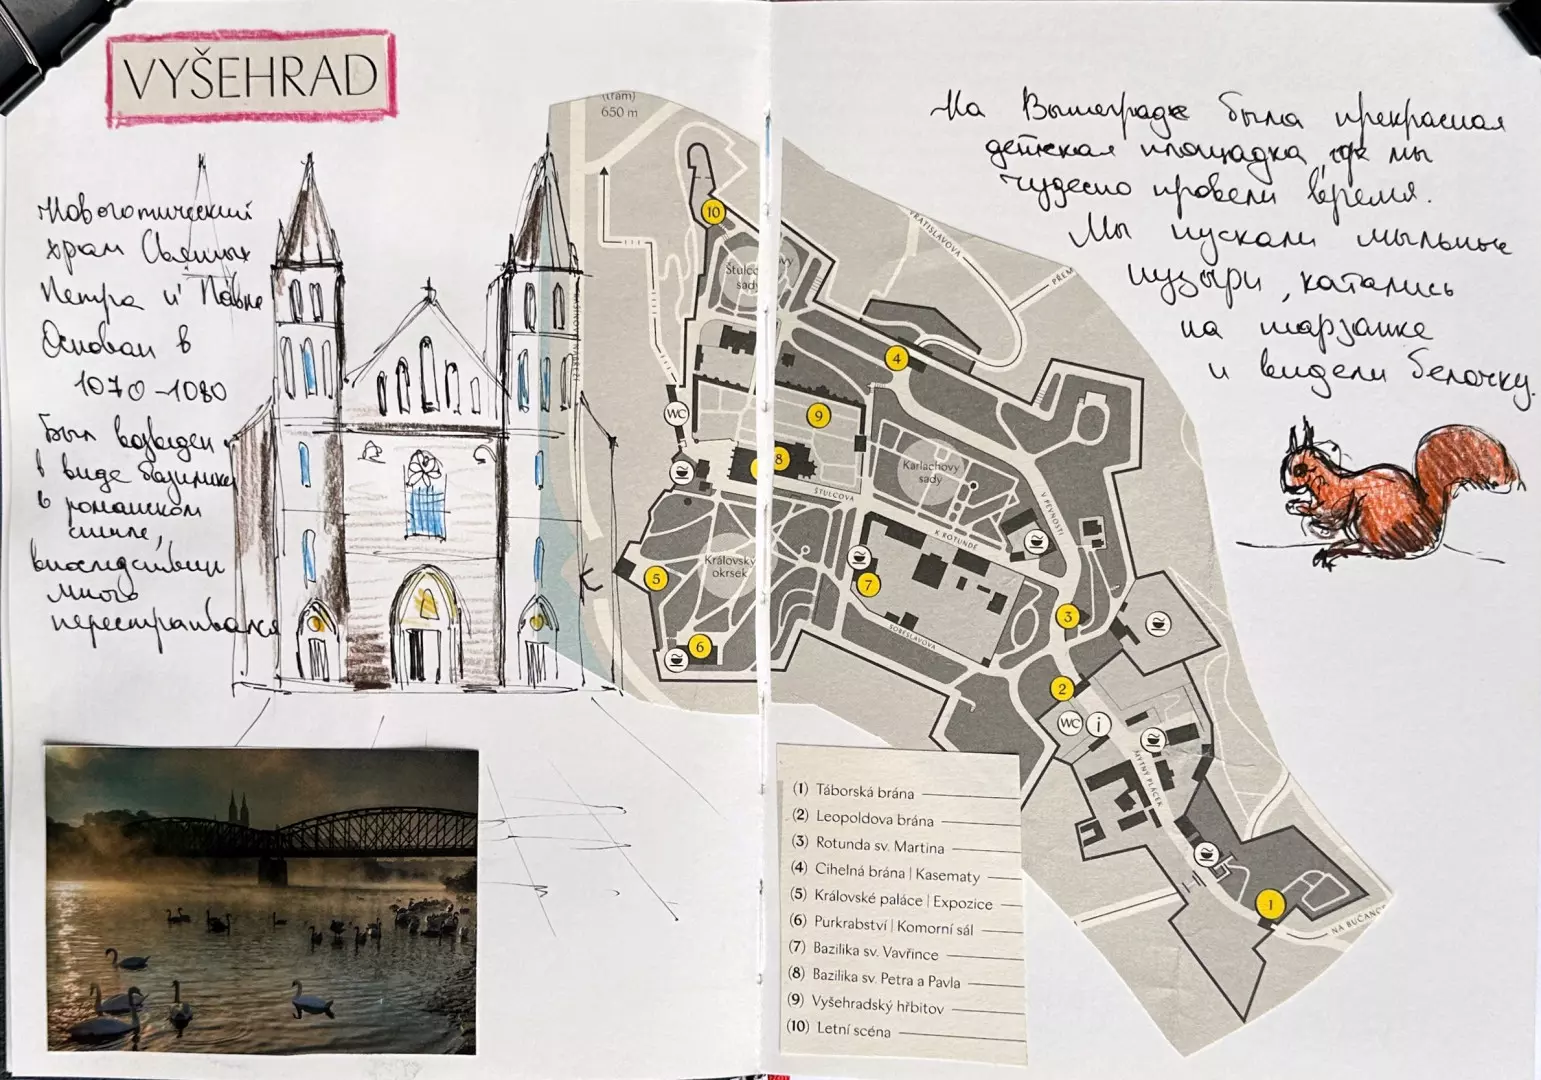 VYŠEHRAD
Новоготический
храм Святых
Петра и Павла
Основан в
1070-1080
Был возведен
в виде базилики
в романском
стиле,
впоследствии
много
перестраивался
На Вышеграде была прекрасная
детская площадка, где мы
чудесно провели время.
Мы пускали мыльные
пузыри, катались
на тарзанке
и видели белочку.
(tram)
650 m
10
Štulcovy
sady
VRATISLAVOVA
PŘEM
4
WC
9
8
Karlachovy
sady
ŠTULCOVA
V PEVNOSTI
K ROTUNDĚ
Královský
okrsek
5
7
3
6
SOBĚSLAVOVA
2
WC
i
MÝTNÝ PLÁCEK
1
NA BUČANC
(1) Táborská brána
(2) Leopoldova brána
(3) Rotunda sv. Martina
(4) Cihelná brána | Kasematy
(5) Královské paláce | Expozice
(6) Purkrabství | Komorní sál
(7) Bazilika sv. Vavřince
(8) Bazilika sv. Petra a Pavla
(9) Vyšehradský hřbitov
(10) Letní scéna